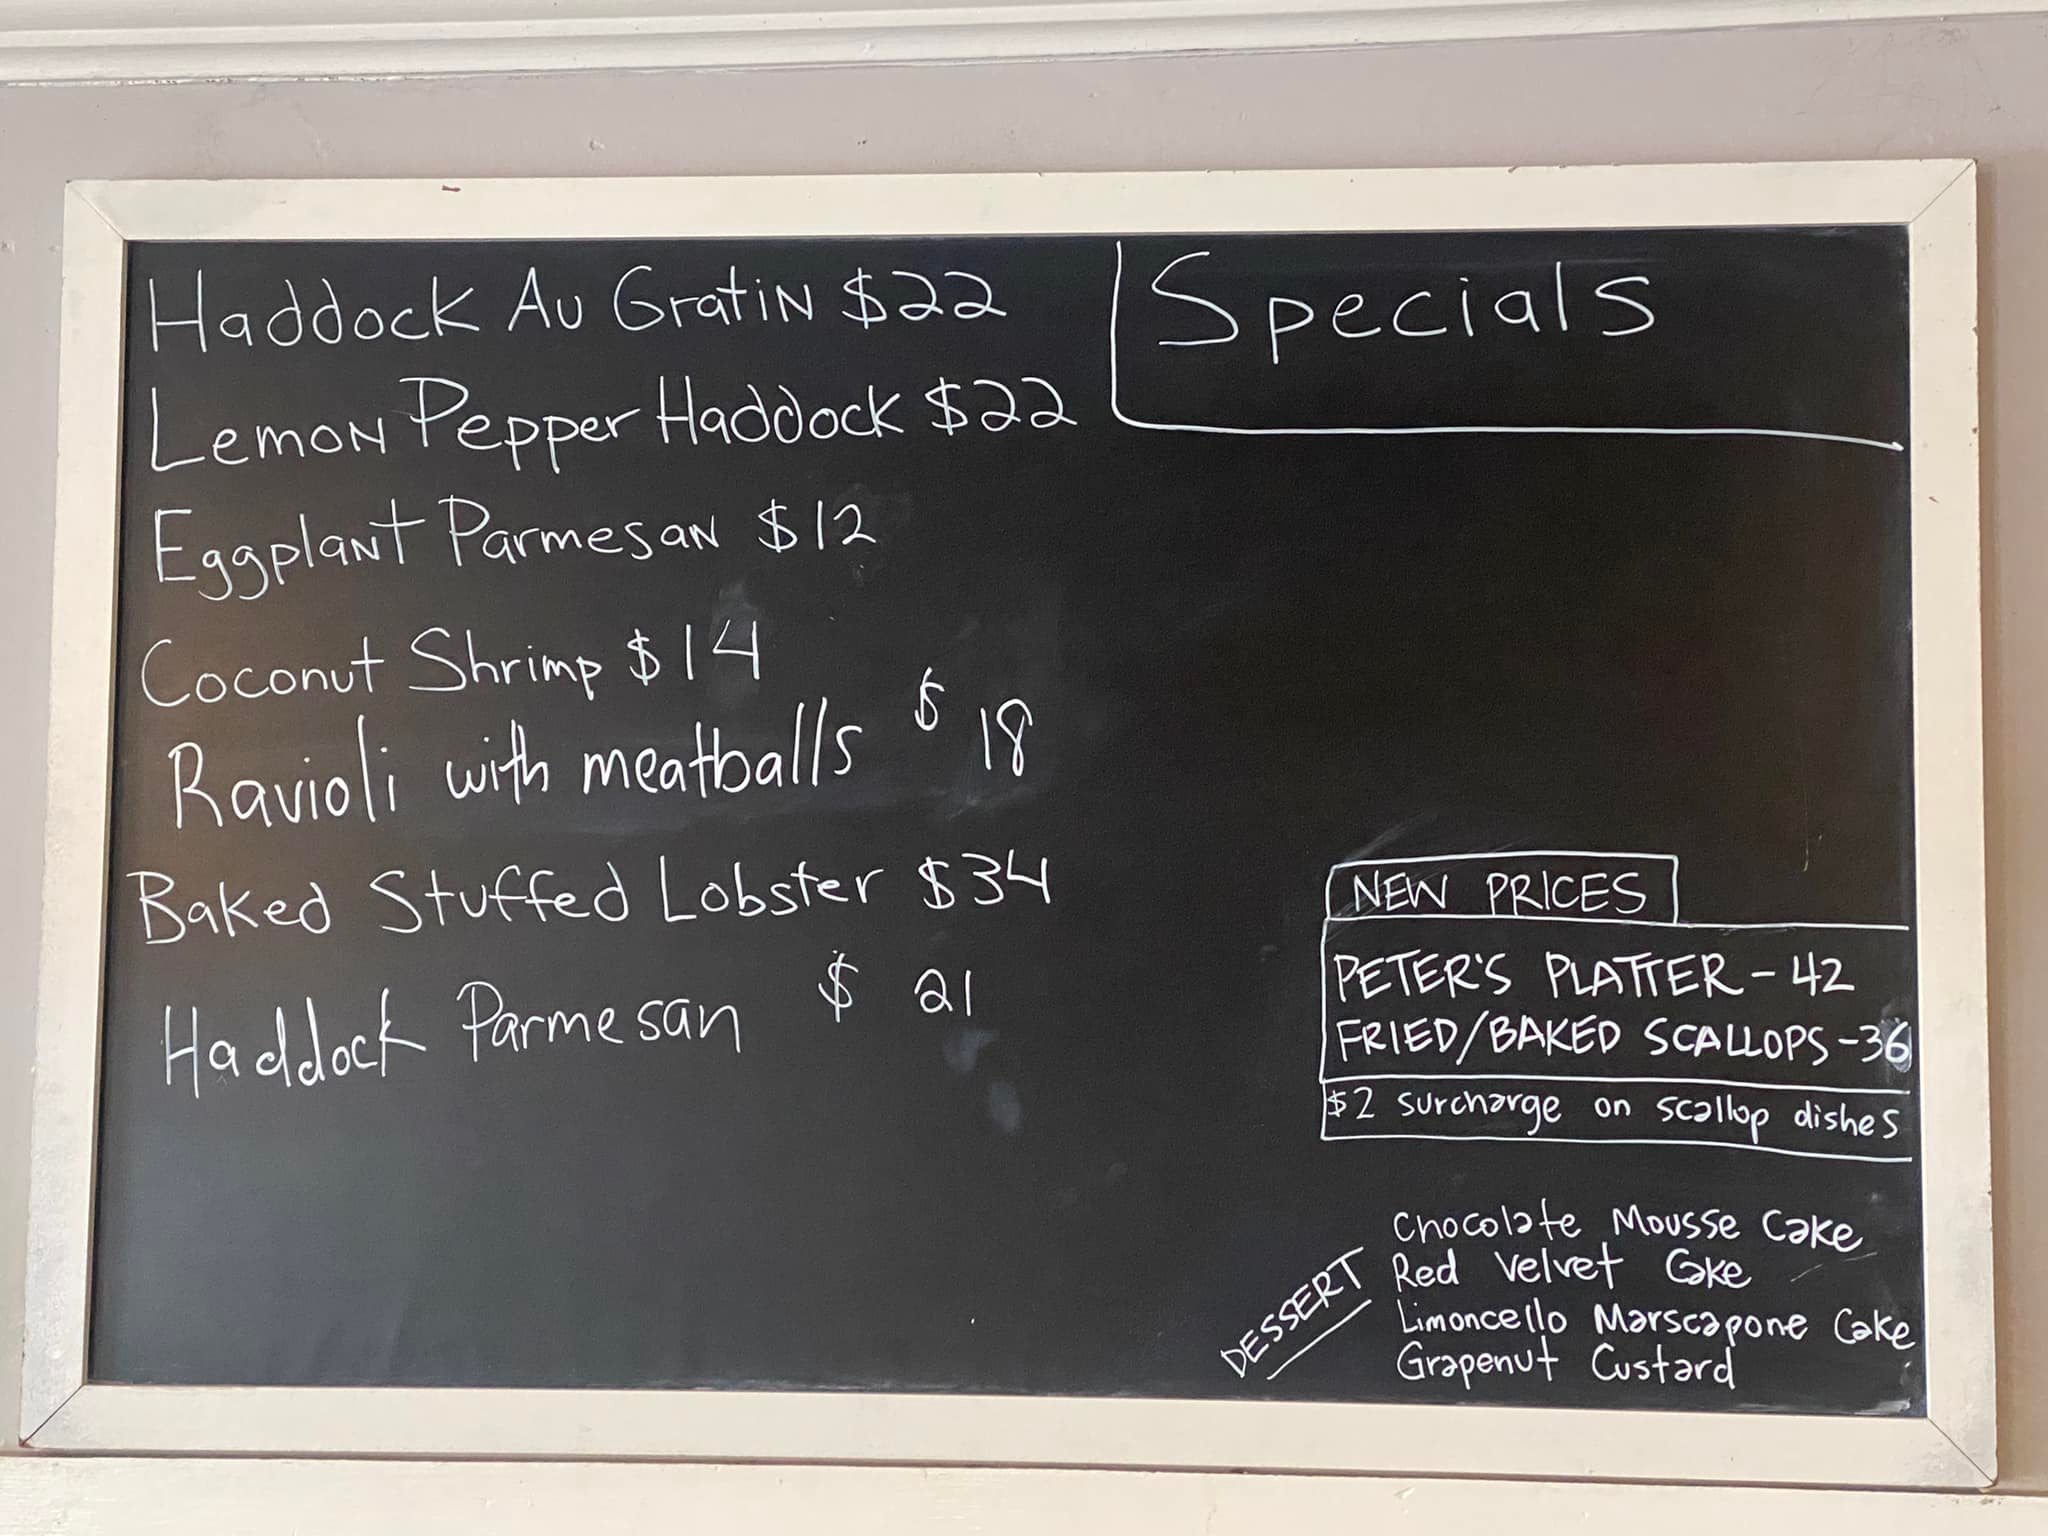 Haddock Au Gratin $22
Lemon Pepper Haddock $22
Eggplant Parmesan $12
Coconut Shrimp $14
Ravioli with meatballs $ 18
Baked Stuffed Lobster $34
Haddock Parmesan $ 21
Specials
NEW PRICES
PETER'S PLATTER - 42
FRIED/BAKED SCALLOPS - 36
$2 surcharge on scallop dishes
DESSERT
Chocolate Mousse Cake
Red Velvet Cake
Limoncello Marscapone Cake
Grapenut Custard